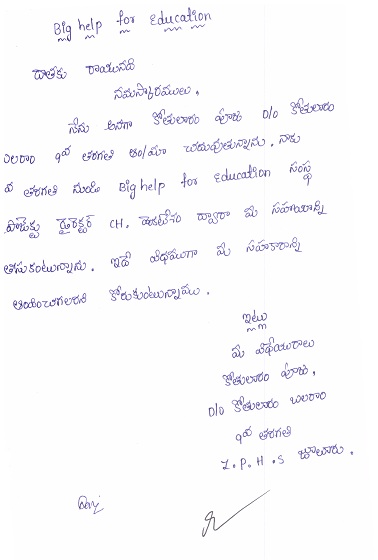 Big help for Education
దాతకు రాయునది
నమస్కారములు.
నేను అనగా కోతులారం పూజ D/o కోతులారం
బలరాం 9వ తరగతి చదువుతున్నాను. నాకు
వ తరగతి నుండి Big help for Education సంస్థ
ప్రాజెక్టు డైరెక్టర్ CH. ద్వారా మీ సహాయాన్ని
తీసుకుంటున్నాను. ఇదే విధముగా మీ సహకారాన్ని
కోరుకుంటున్నాము.
ఇట్లు
మీ విధేయురాలు
కోతులారం పూజ,
D/o కోతులారం బలరాం
9వ తరగతి
Z.P.H.S జూలూరు.